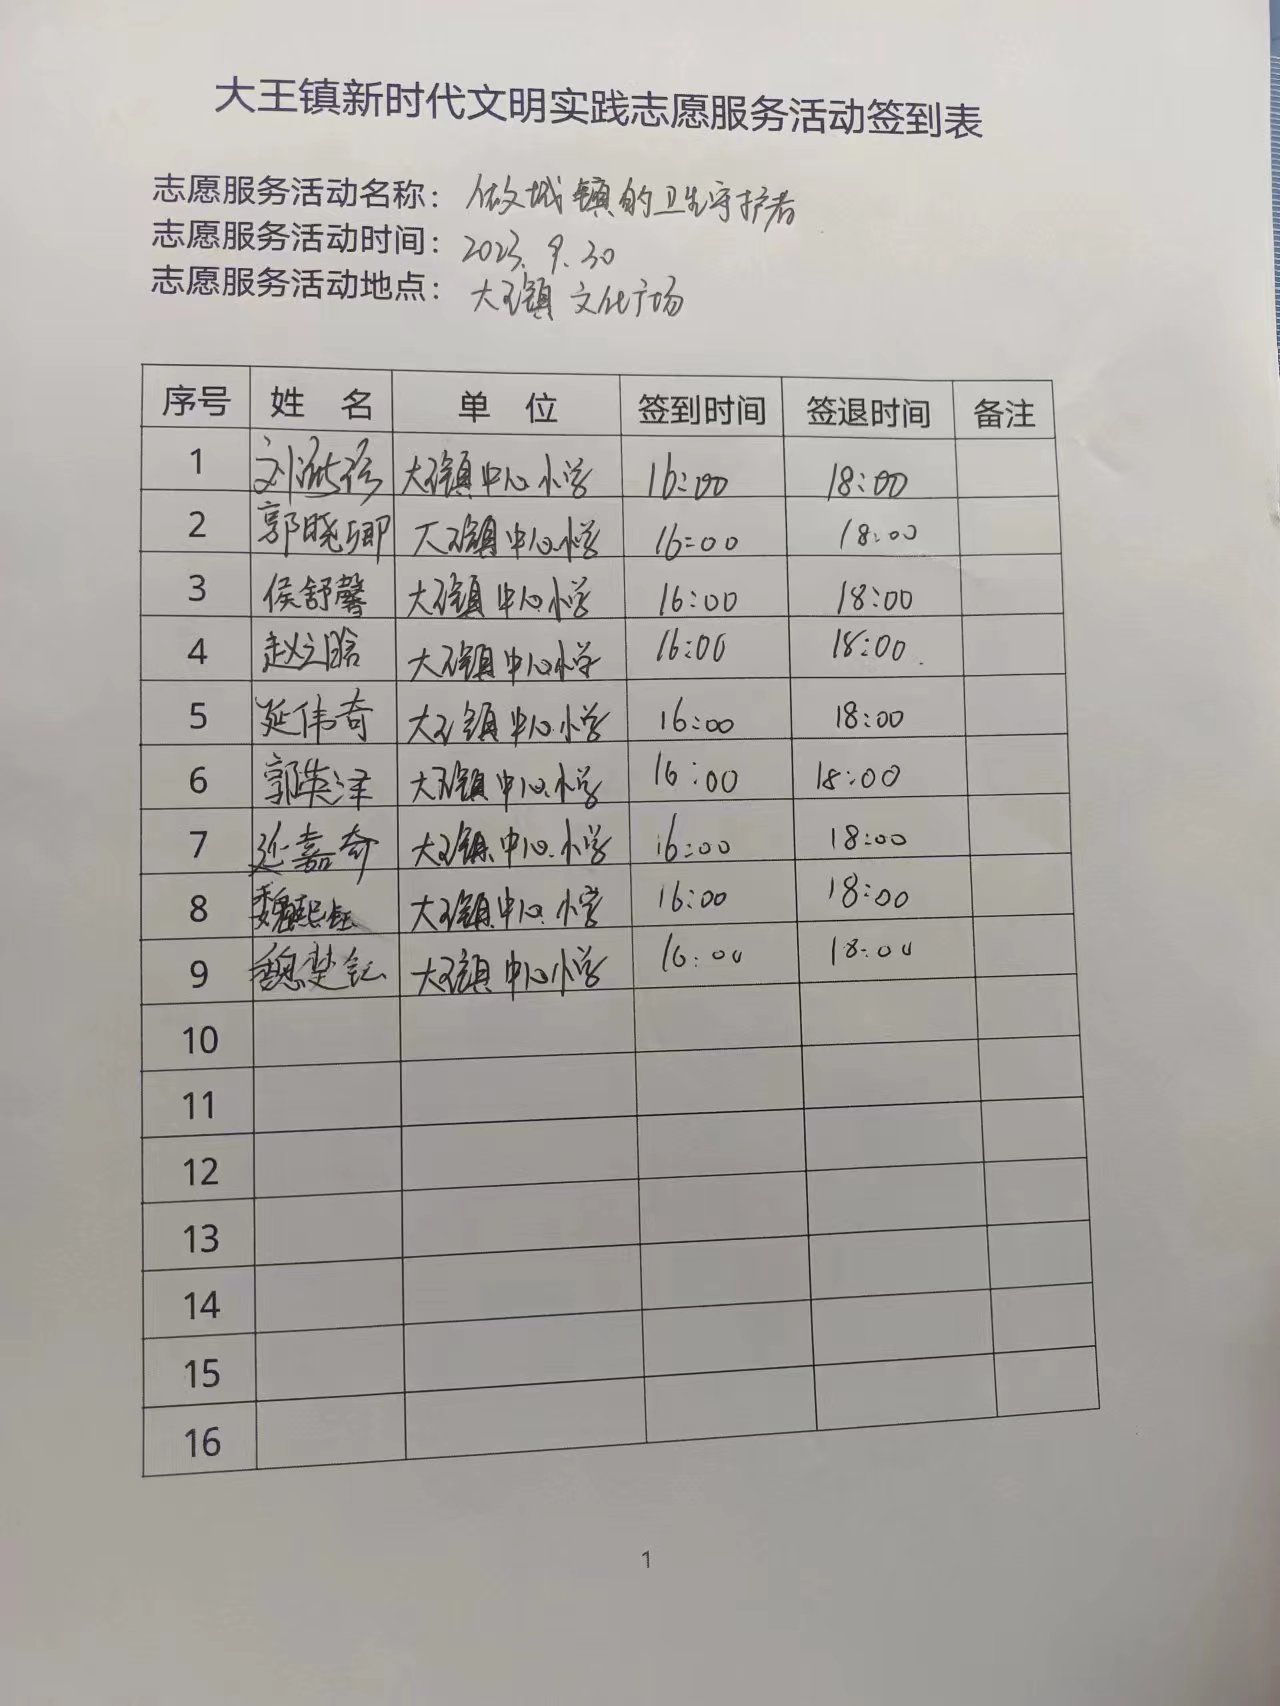 大王镇新时代文明实践志愿服务活动签到表
志愿服务活动名称：做城镇的卫生守护者
志愿服务活动时间：2023.9.30
志愿服务活动地点：大王镇文化广场
序号 姓 名 单 位 签到时间 签退时间 备注
1 刘 大王镇中心小学 16:00 18:00
2 郭晓卿 大王镇中心小学 16:00 18:00
3 侯舒馨 大王镇中心小学 16:00 18:00
4 赵立晗 大王镇中心小学 16:00 18:00
5 延伟奇 大王镇中心小学 16:00 18:00
6 郭英泽 大王镇中心小学 16:00 18:00
7 延嘉奇 大王镇中心小学 16:00 18:00
8 魏熙钰 大王镇中心小学 16:00 18:00
9 魏楚 大王镇中心小学 16:00 18:00
10
11
12
13
14
15
16
1